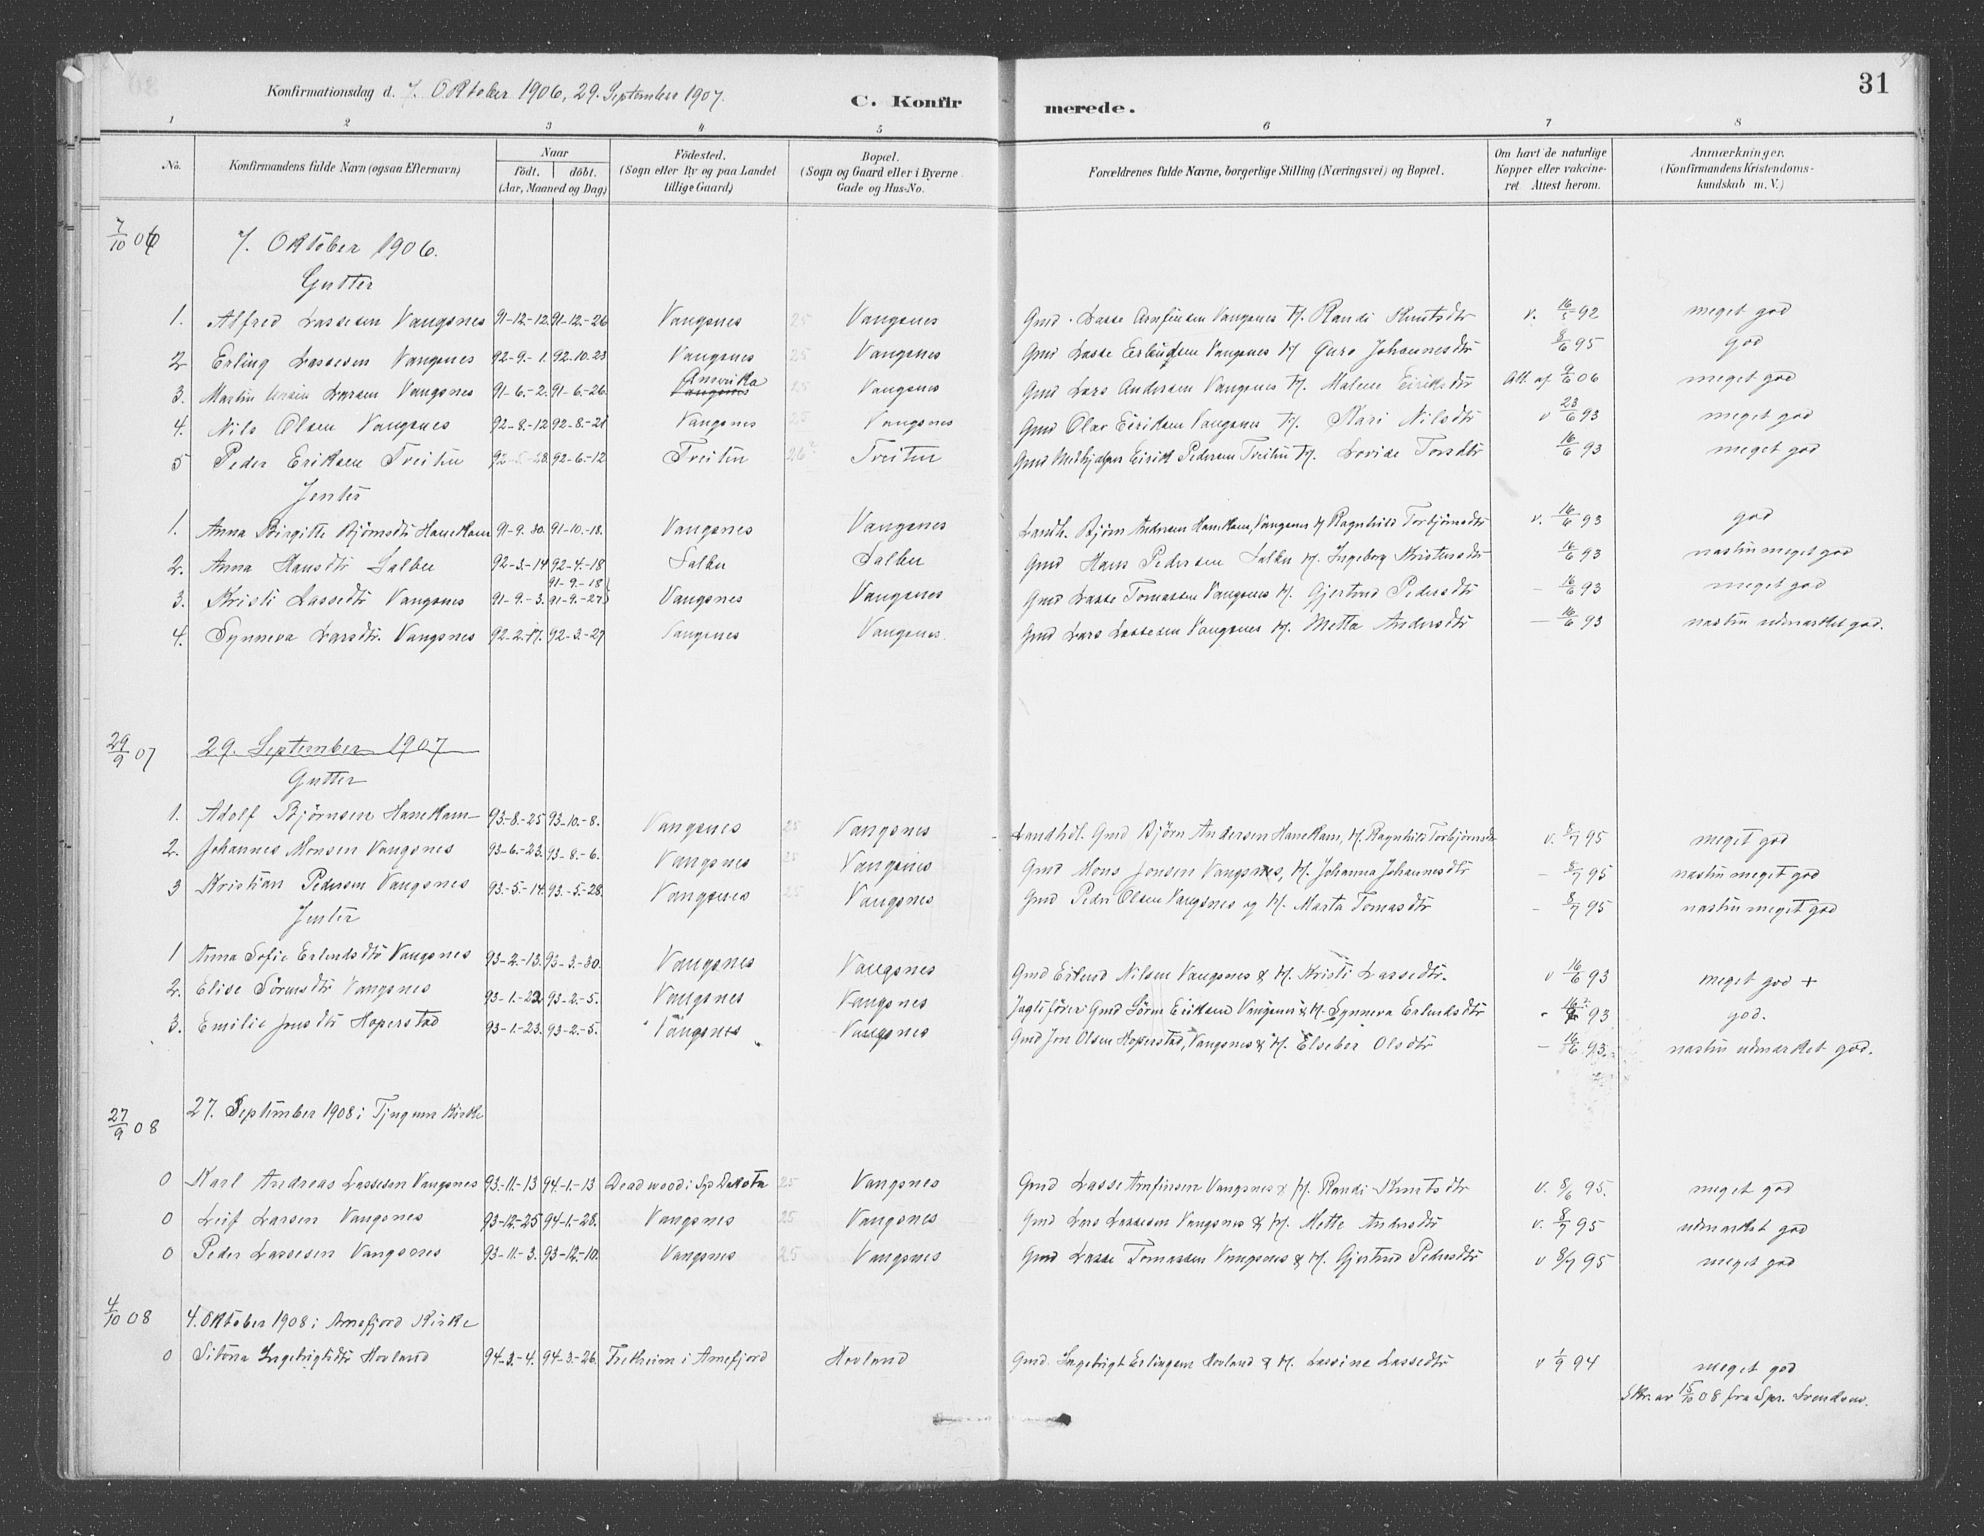 Konfirmationsdag d. 7. Oktober 1906, 29. September 1907.
C. Konfirmerede.
31
1 2 3 4 5 6 7 8
No. Konfirmandens fulde Navn (ogsaa Efternavn) Naar født. døbt. (Aar, Maaned og Dag) Fødested. (Sogn eller By og paa Landet tillige Gaard) Bopæl. (Sogn og Gaard eller i Byerne Gade og Hus-No. Forældrenes fulde Navne, borgerlige Stilling (Næringsvei) og Bopæl. Om havt de naturlige Kopper eller vakcineret. Attest herom. Anmærkninger. (Konfirmandens Kristendomskundskab m. V.)
7/10 06 7. Oktober 1906.
Gutter
1. Alfred Lassesen Vangsnes 91-12-12 91-12-26 Vangsnes 25 Vangsnes Gmd. Lasse Arnfinsen Vangsnes & H. Randi Knutsdtr v. 92 meget god
2 Erling Lassesen Vangsnes 92-9-1. 92-10-23 Vangsnes 25 Vangsnes Gmd Lasse Erlendsen Vangsnes & H Guro Johannesdtr 8/6 95 god
3. Martin Larsen Vangsnes 91-6-2. 91-6-26. Amerika Vangsnes 25 Vangsnes Gmd Lars Andersen Vangsnes & H. Malene Eiriksdtr Att. af 9/6 06 meget god
4. Nils Olsen Vangsnes 92-8-12 92-8-21 Vangsnes 25 Vangsnes Gmd Olav Eiriksen Vangsnes & H. Kari Nilsdtr v 23/6 93 meget god
5 Peder Eriksen Tveitun 92-5-28. 92-6-12 Tveitun Tveitun Gmd Eirik Pedersen Tveitun & H. Lovise Torsdtr 16/6 93 meget god
Jenter
1. Anna Birgitte Bjørnsdtr Hanekam 91-9-30. 91-10-18. Vangsnes Vangsnes Landh. Bjørn Andersen Hanekam, Vangsnes & H Ragnhild Torbjørnsdtr v. 16/6 93 god
2. Anna Hansdtr Salbu 92-3-14 92-4-18 Salbu Salbu Gmd Hans Pedersen Salbu & H. Ingeborg Kristensdtr 16/6 93 næsten meget god
3. Kristi Lassedtr Vangsnes 91-9-3. 91-9-18 91-9-27 Vangsnes Vangsnes Gmd Lasse Tomassen Vangsnes & H. Gjertrud Pedersdtr – 16/6 93 meget god
4. Synneva Larsdtr. Vangsnes 92-2-17. 92-3-27 Vangsnes Vangsnes. Gmd Lars Lassesen Vangsnes & H. Metta Andersdtr – 16/6 93 næsten udmærket god.
29/9 07 29. September 1907
Gutter
1. Adolf Bjørnsen Hanekam 93-8-25 93-10-8. Vangsnes 25 Vangsnes Landhdl. Gmd Bjørn Andersen Hanekam, & H. Ragnhild Torbjørnsdtr v. 8/7 95 meget god
2. Johannes Monsen Vangsnes 93-6-23. 93-8-6. Vangsnes 25 Vangsnes Gmd Mons Jonsen Vangsnes, & H. Johanna Johannesdtr – 8/7 95 næsten meget god
3 Kristian Pedersen Vangsnes 93-5-14. 93-5-28. Vangsnes 25 Vangsnes Gmd Peder Olsen Vangsnes og H. Marta Tomasdtr – 8/7 95 næsten meget god
Jenter
1 Anna Sofie Erlendsdtr Vangsnes 93-2-13. 93-3-30. Vangsnes Vangsnes Gmd Erlend Nilsen Vangsnes & H. Kristi Lassedtr. v 16/6 93 meget god +
2. Elise Sörensdtr Vangsnes 93-1-22 93-2-5. Vangsnes Vangsnes Jagtsfører Gmd Sören Eriksen Vangsnes & H. Synneva Erlendsdtr 93 god.
3. Emilie Jonsdtr Hoperstad 93-1-23. 93-2-5. Vangsnes Vangsnes Gmd Jon Olsen Hoperstad, Vangsnes & H. Elseber Olsdtr – 16/6 93. næsten udmærket god.
27/9 08 27. September 1908 i Tjugum Kirke
0 Karl Andreas Lassesen Vangsnes 93-11-13 94-1-13 Deadwood i Syd Dakota 25 Vangsnes Gmd Lasse Arnfinsen Vangsnes & H. Randi Knutsdtr v. 8/6 95. meget god
0 Leif Larsen Vangsnes 93-12-25 94-1-28. Vangsnes 25 Vangsnes Gmd Lars Lassesen Vangsnes & H. Mette Andersdtr v. 8/7 95 udmærket god
0 Peder Lassesen Vangsnes 93-11-3. 93-12-10. Vangsnes 25 Vangsnes Gmd Lasse Tomassen Vangsnes & H. Gjertrud Pedersdtr v 8/7 95 meget god
4/10 08 4. Oktober 1908 i Arnefjord Kirke
0 Ingebrigtsdtr Hovland 94-3-4. 94-3-26. Tretheim i Arnefjord Hovland Gmd. Ingebrigt Erlingsen Hovland & H. Lassine Lassedtr v 1/9 94 meget god
Skr. av 15/10 08 fra Spr. Svendsen.